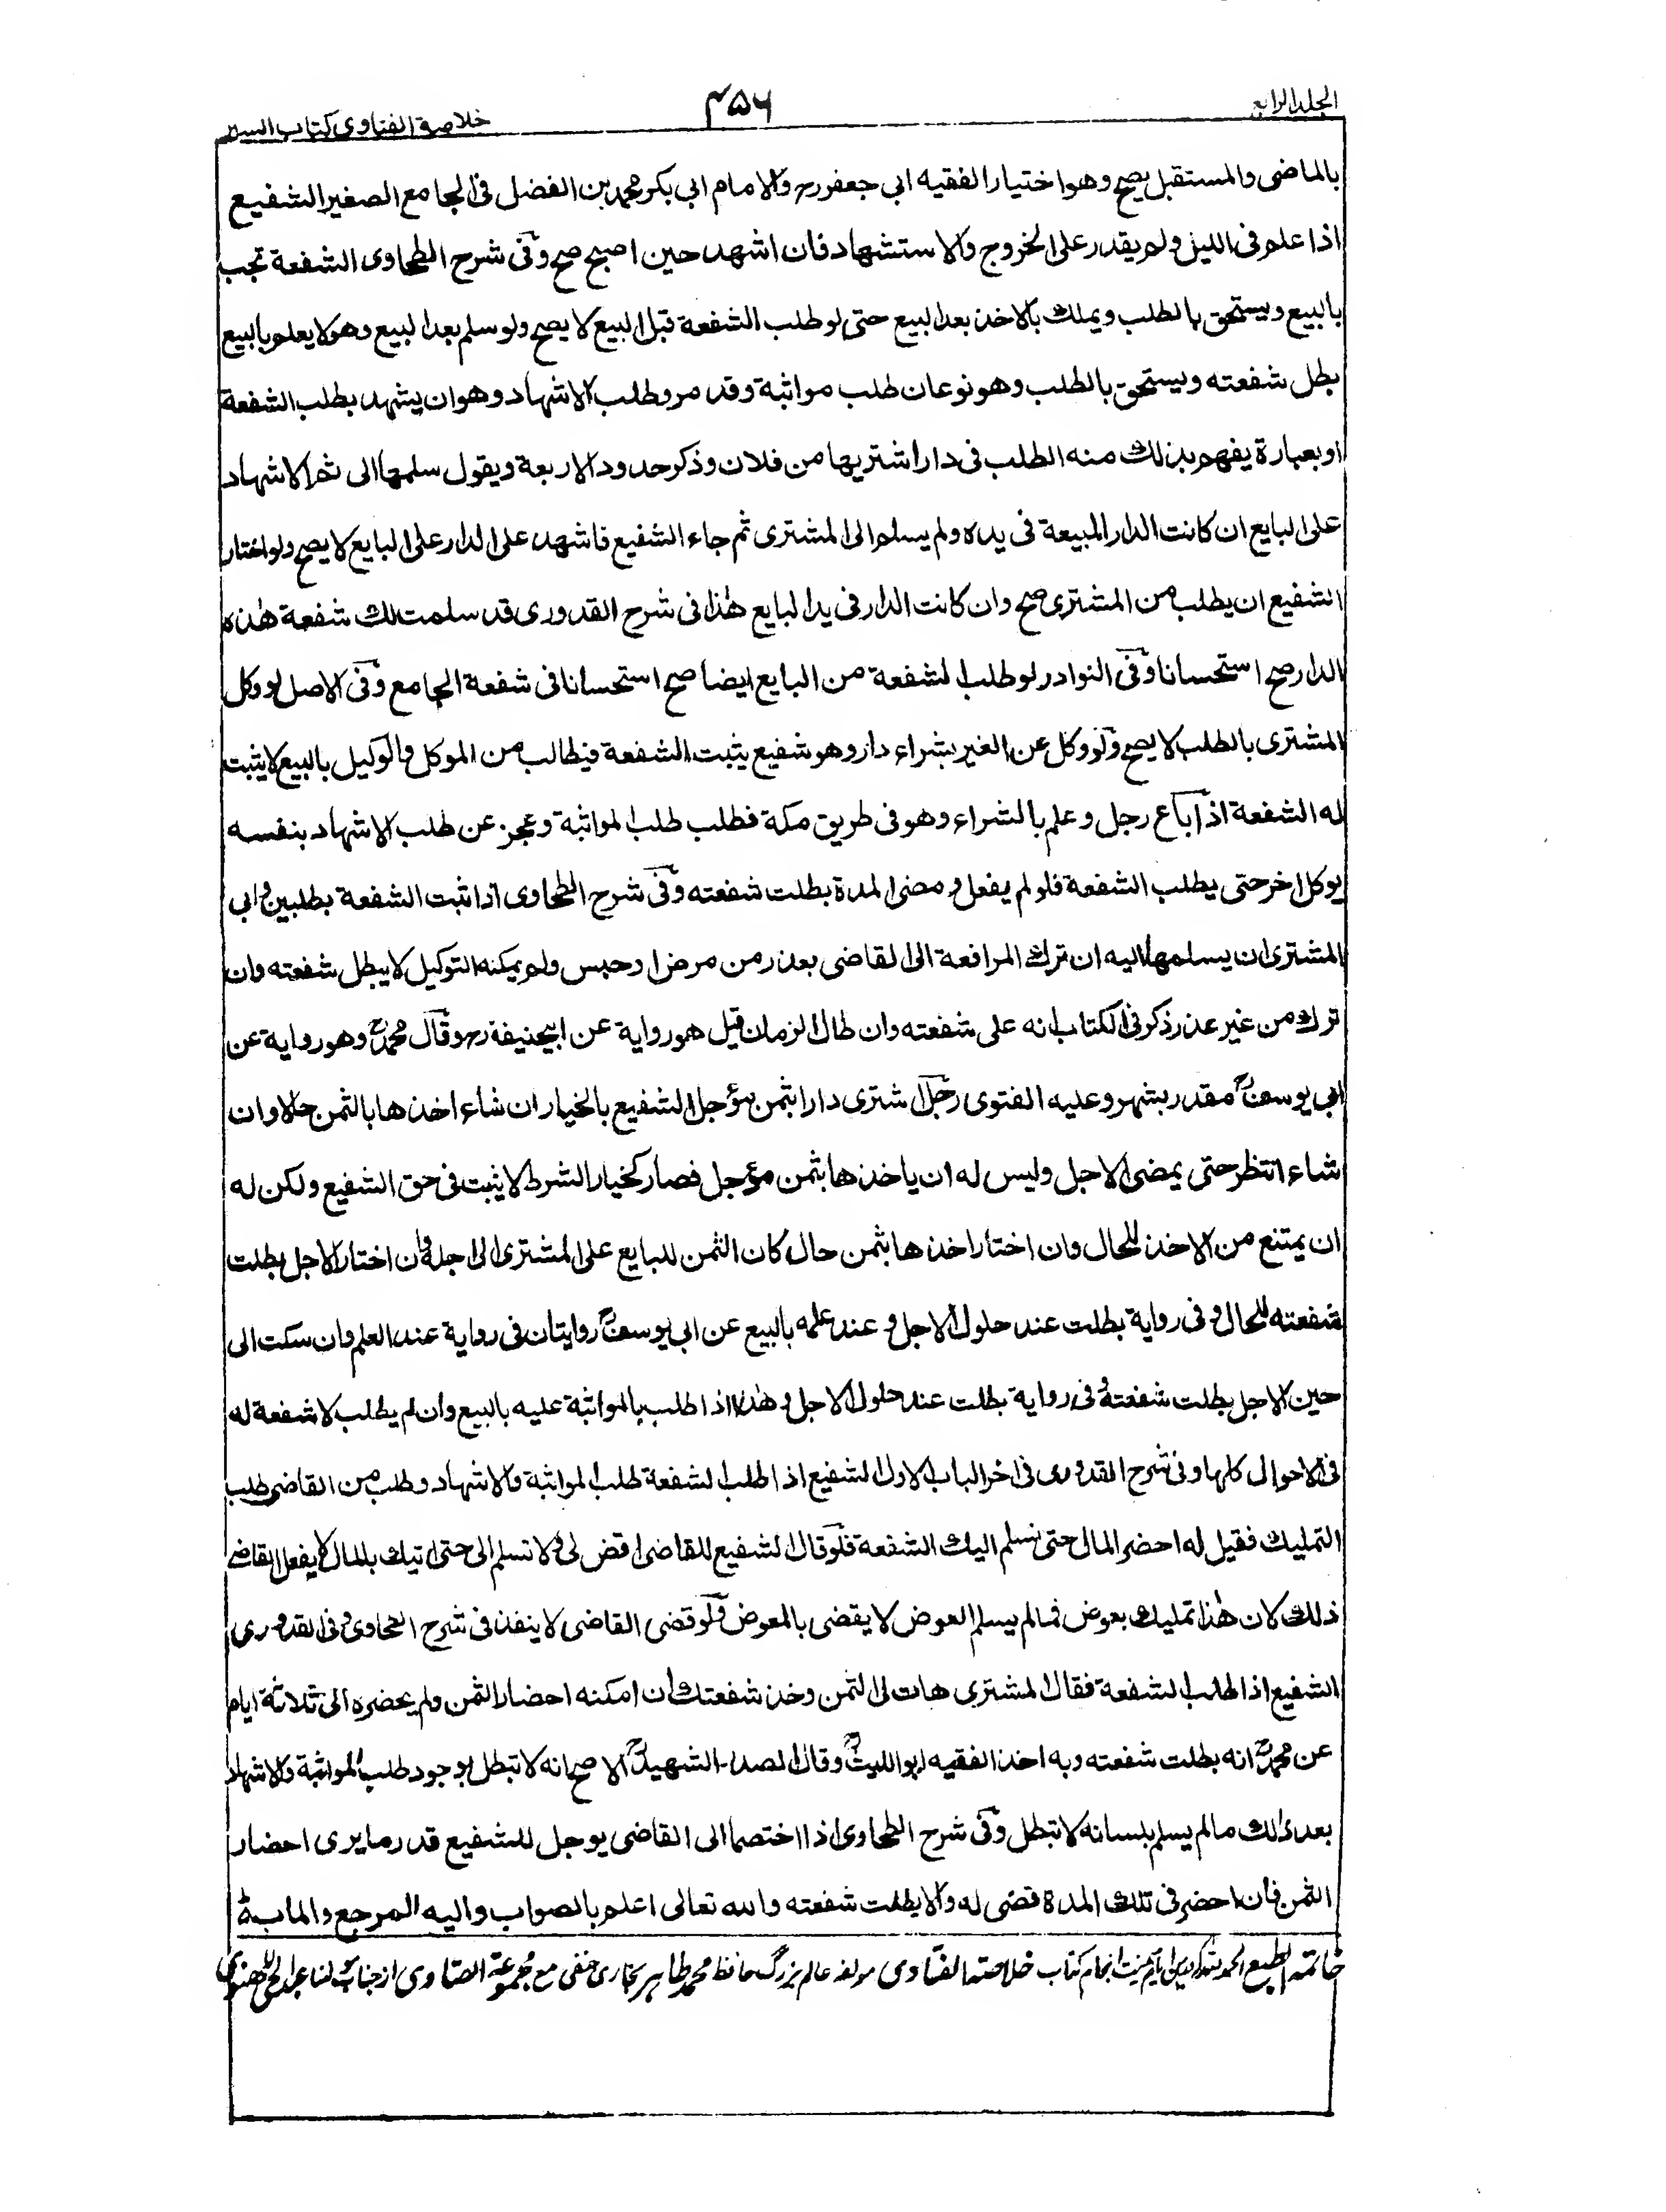 الجلد الرابع
۴۵۶
خلاصة الفتاوى كتاب السير
بالماضى والمستقبل يصح وهو اختيار الفقيه ابى جعفر رح والامام ابى بكر محمد بن الفضل فى الجامع الصغير الشفيع
اذا علم فى الليل ولم يقدر على الخروج والاستشهاد فان اشهد حين اصبح صح وفى شرح الطحاوى الشفعة تجب
بالبيع ويستحق بالطلب ويملك بالاخذ بعد البيع حتى لو طلب الشفعة قبل البيع لا يصح ولو سلم بعد البيع وهو لا يعلم بالبيع
بطل شفعته ويستحق بالطلب وهو نوعان طلب مواثبة وقد مر وطلب الاشهاد وهو ان يشهد بطلب الشفعة
او بعبارة يفهم بذلك منه الطلب فى دار اشتريها من فلان وذكر حدود الاربعة ويقول سلمها الى ثم الاشهاد
على البايع ان كانت الدار المبيعة فى يده ولم يسلم الى المشترى ثم جاء الشفيع فاشهد على الدار على البايع لا يصح ولو اختار
الشفيع ان يطلب من المشترى صح وان كانت الدار فى يد البايع هذا فى شرح القدورى قد سلمت لك شفعة هذه
الدار صح استحسانا وفى النوادر لو طلب الشفعة من البايع ايضا صح استحسانا فى شفعة الجامع وفى الاصل لو وكل
المشترى بالطلب لا يصح ولو وكل عن الغير بشراء دار وهو شفيع يثبت الشفعة فيطالب من الموكل والوكيل بالبيع لا يثبت
له الشفعة اذا باع رجل وعلم بالشراء وهو فى طريق مكة فطلب طلب المواثبة وعجز عن طلب الاشهاد بنفسه
يوكل اخر حتى يطلب الشفعة فلو لم يفعل ومضى المدة بطلت شفعته وفى شرح الطحاوى اذا ثبت الشفعة بطلبين وابى
المشترى ان يسلمها اليه ان ترك المرافعة الى القاضى بعذر من مرض او حبس ولم يمكنه التوكيل لا يبطل شفعته وان
ترك من غير عذر ذكر فى الكتاب انه على شفعته وان طال الزمان قيل هو رواية عن ابيحنيفة رح وقال محمد رح وهو رواية عن
ابى يوسف رح مقدر بشهر وعليه الفتوى رجل اشترى دارا بثمن مؤجل الشفيع بالخيار ان شاء اخذها بالثمن حالا وان
شاء انتظر حتى يمضى الاجل وليس له ان ياخذها بثمن مؤجل فصار كخيار الشرط لا يثبت فى حق الشفيع ولكن له
ان يمتنع من الاخذ للحال وان اختار اخذها بثمن حال كان الثمن للبايع على المشترى الى اجله وان اختار الاجل بطلت
شفعته للحال وفى رواية بطلت عند حلول الاجل وعند علمه بالبيع عن ابى يوسف رح روايتان فى رواية عند العلم وان سكت الى
حين الاجل بطلت شفعته وفى رواية بطلت عند حلول الاجل وهذا اذا طلب بالمواثبة عليه بالبيع وان لم يطلب لا شفعة له
فى الاحوال كلها وفى شرح القدورى فى اخر الباب الاول الشفيع اذا طلب الشفعة طلب المواثبة والاشهاد وطلب من القاضى طلب
التمليك فقيل له احضر المال حتى نسلم اليك الشفعة فلو قال الشفيع للقاضى اقض لى ولا تسلم الى حتى اتيك بالمال لا يفعل القاضى
ذلك لان هذا تمليك بعوض فما لم يسلم العوض لا يقضى بالمعوض ولو قضى القاضى لا ينفذ فى شرح الطحاوى وفى القدورى
الشفيع اذا طلب الشفعة فقال المشترى هات لى الثمن وخذ شفعتك وان امكنه احضار الثمن ولم يحضره الى ثلاثة ايام
عن محمد رح انه بطلت شفعته وبه اخذ الفقيه ابو الليث رح وقال الصدر الشهيد رح الاصح انه لا تبطل لوجود طلب المواثبة والاشهاد
بعد ذلك ما لم يسلم بلسانه لا تبطل وفى شرح الطحاوى اذا اختصما الى القاضى يوجل للشفيع قدر ما يرى احضار
الثمن فان احضر فى تلك المدة قضى له والا بطلت شفعته والله تعالى اعلم بالصواب واليه المرجع والماب
خاتمة الطبع الحمد لله كتاب خلاصة الفتاوى مولفه عالم بزرگ حافظ محمد طاهر بخارى حنفى مع مجموعة الفتاوى از جناب مولنا عبد الحى لكهنوى